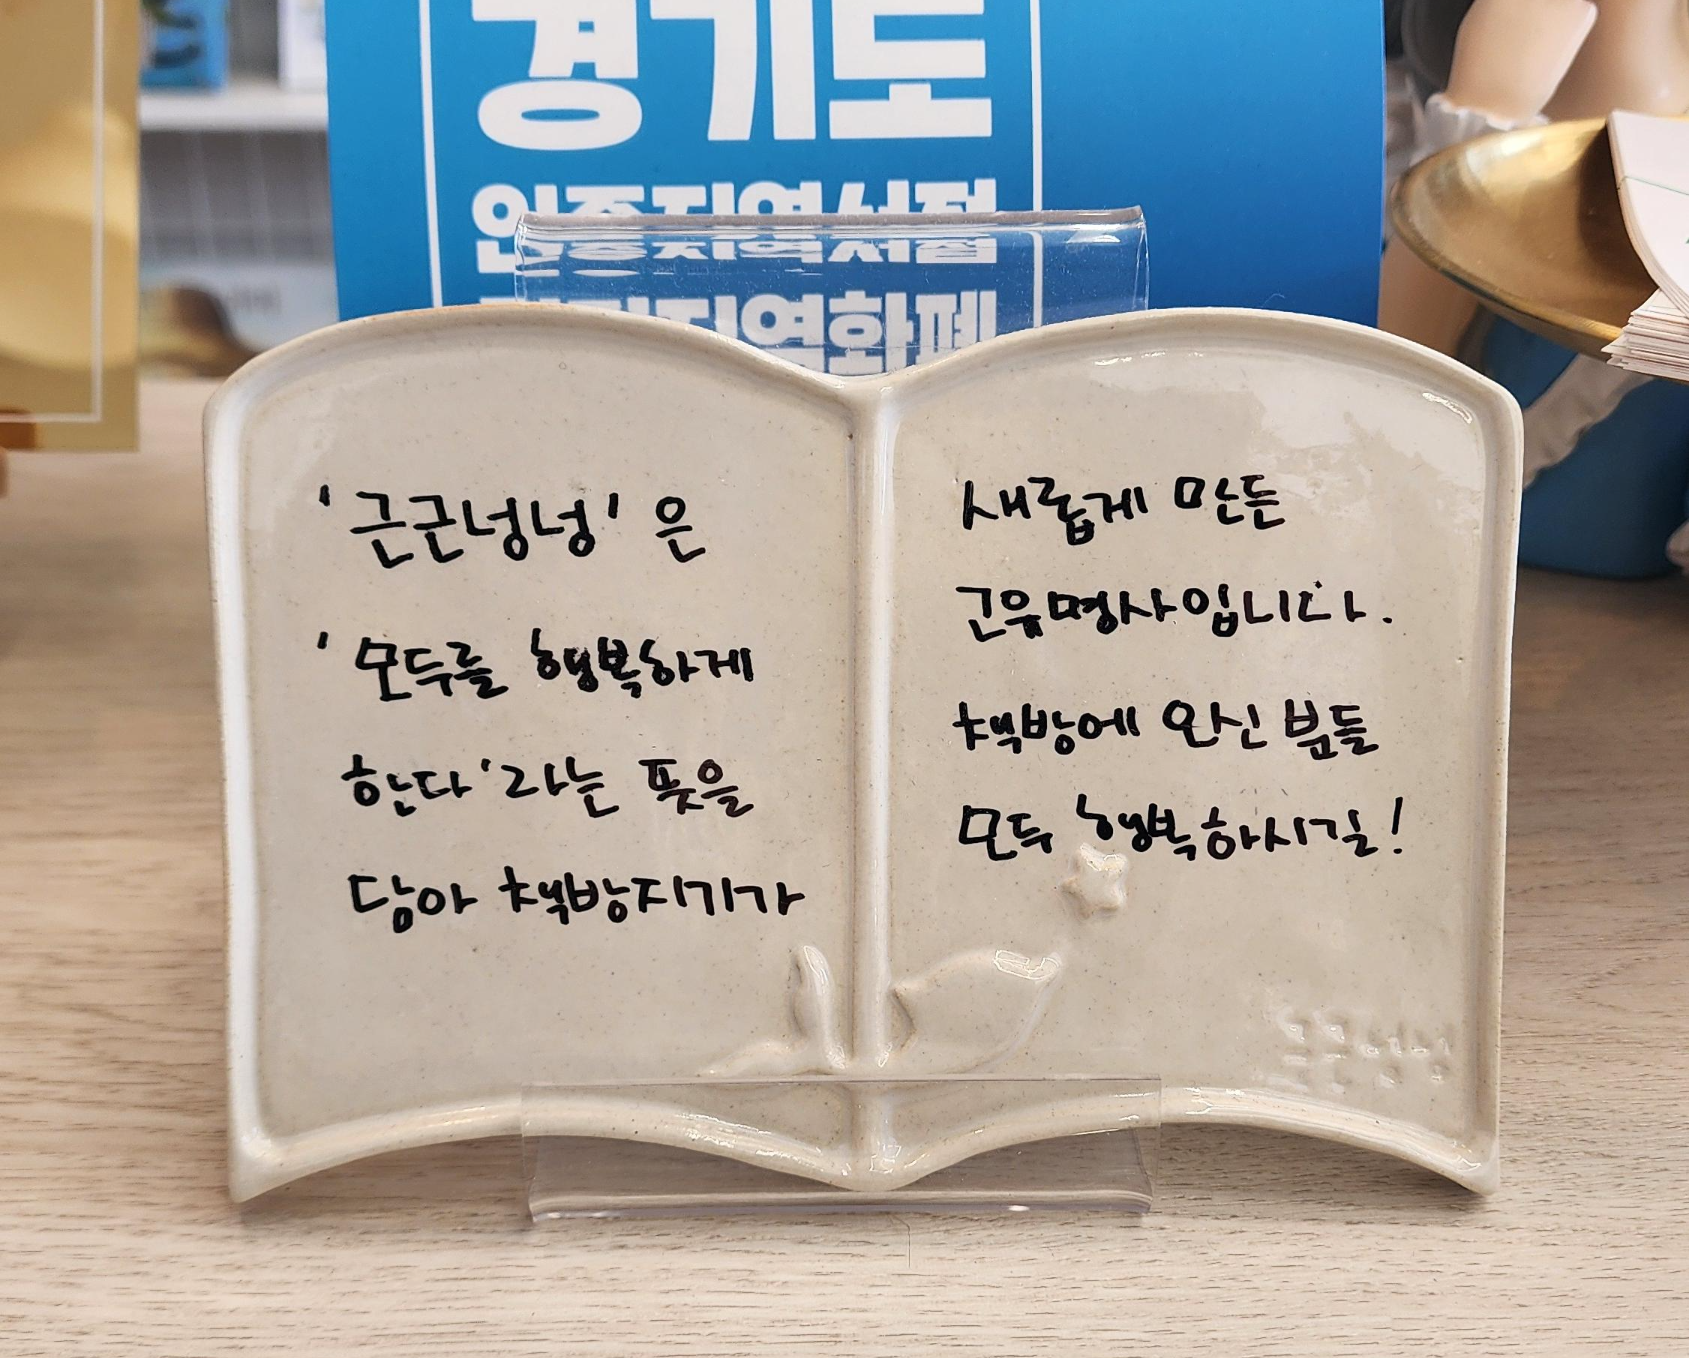 경기도
인증지역서점
지역화폐
'근근넝넝'은
'모두를 행복하게
한다'라는 뜻을
담아 책방지기가
새롭게 만든
고유명사입니다.
책방에 오신 분들
모두 행복하시길!
근근넝넝